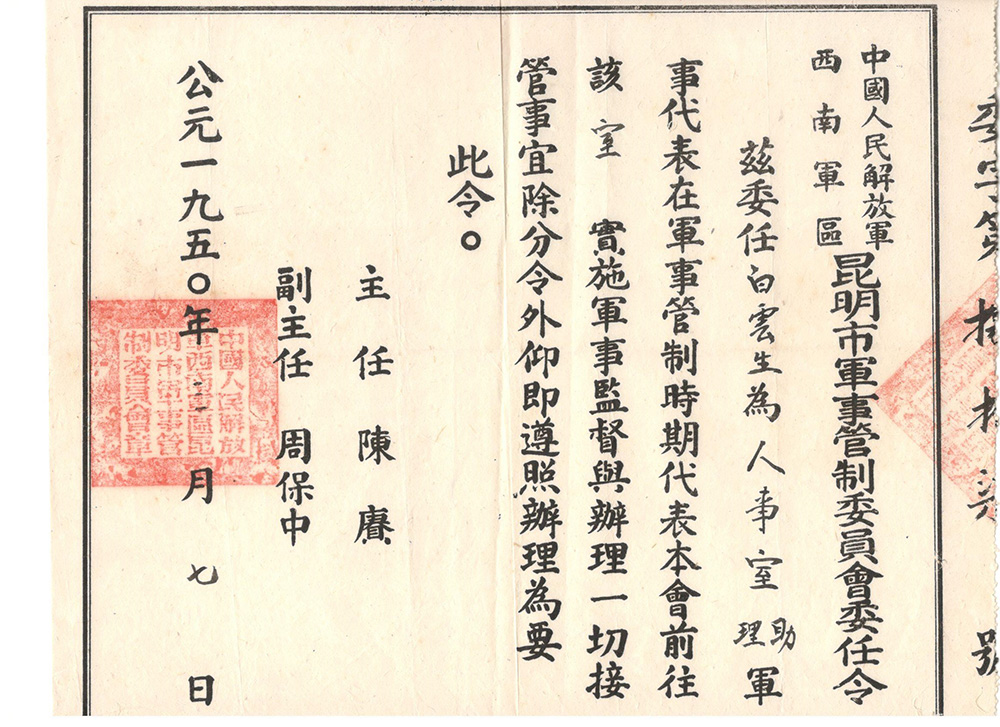 委字第 號
中國人民解放軍
西南軍區
昆明市軍事管制委員會委任令
茲委任白雲生為人事室助理軍
事代表在軍事管制時期代表本會前往
該室 實施軍事監督與辦理一切接
管事宜除分令外仰即遵照辦理為要
此令。
主任 陳賡
副主任 周保中
公元一九五〇年三月七日
中國人民解放
軍西南軍區昆
明市軍事管
制委員會章